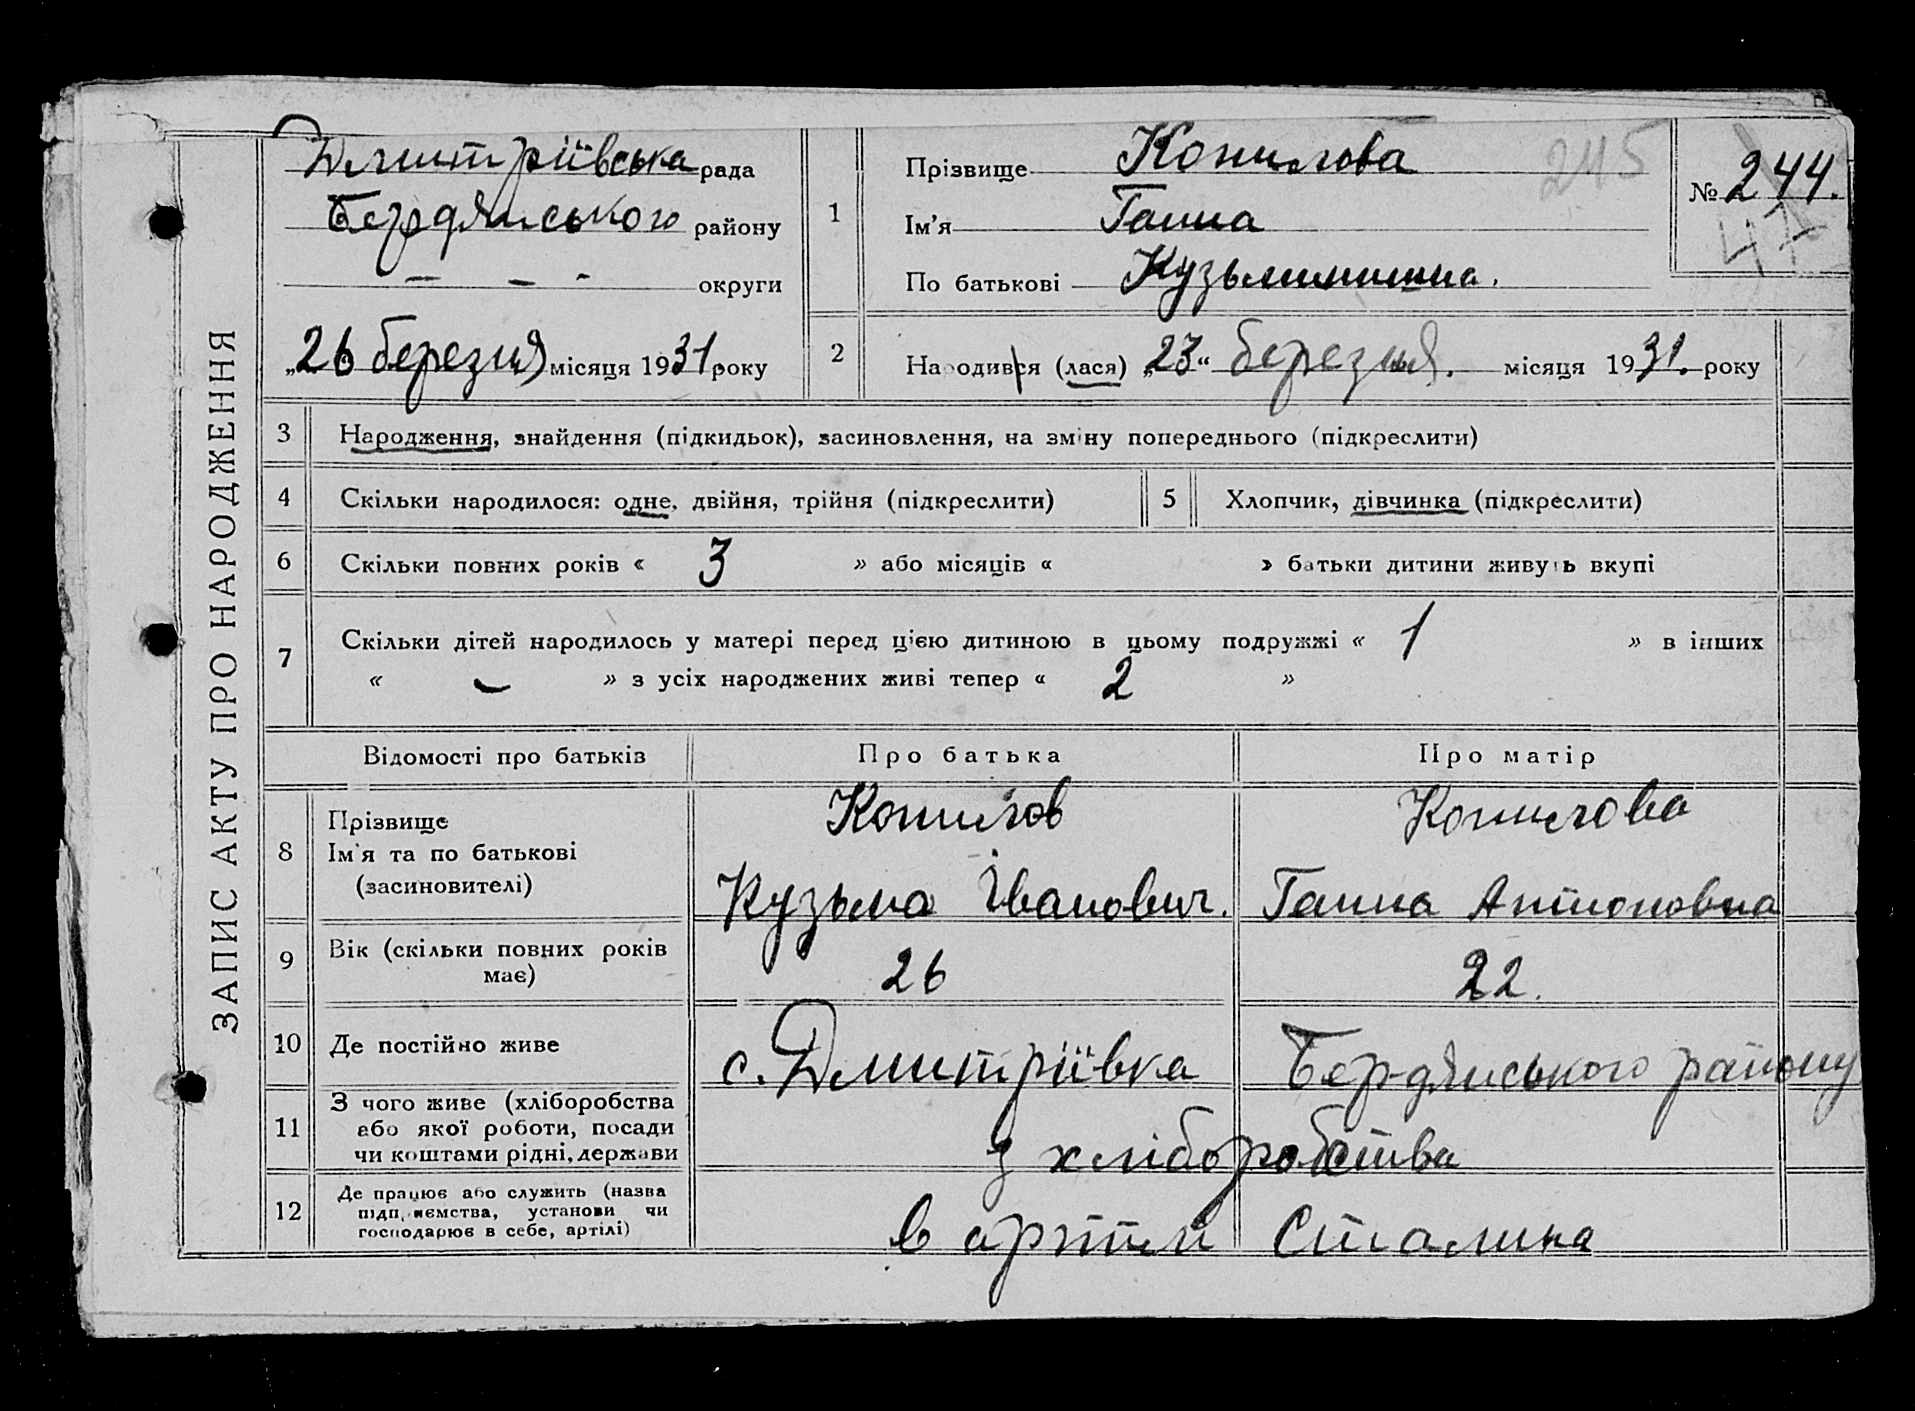 ЗАПИС АКТУ ПРО НАРОДЖЕННЯ
Дмитріївська рада
Бердянського району
— — - округи
„26 березня місяця 1931 року
1
Прізвище Копилова
Ім'я Ганна
По батькові Кузьминишна.
245
№ 244.
47
2
Народився (лася) „23“ березня. місяця 1931. року
3 Народження, знайдення (підкидьок), засиновлення, на зміну попереднього (підкреслити)
4 Скільки народилося: одне, двійня, трійня (підкреслити)
5 Хлопчик, дівчинка (підкреслити)
6 Скільки повних років « 3 » або місяців « » батьки дитини живуть вкупі
7 Скільки дітей народилось у матері перед цією дитиною в цьому подружжі « 1 » в інших
« - » з усіх народжених живі тепер « 2 »
Відомості про батьків Про батька Про матір
8 Прізвище
Ім'я та по батькові
(засиновителі)
Копилов
Кузьма Іванович.
Копилова
Ганна Антоновна
9 Вік (скільки повних років
має)
26 22.
10 Де постійно живе с. Дмитріївка Бердянського району
11 З чого живе (хліборобства
або якої роботи, посади
чи коштами рідні, держави
з хліборобства
12 Де працює або служить (назва
підприємства, установи чи
господарює в себе, артілі)
в артілі Сталина